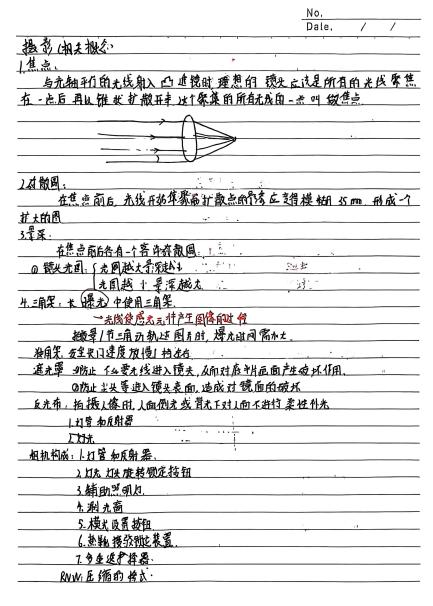 No.
Date. / /
摄影(相关概念)
1.焦点:
与光轴平行的光线射入凸透镜时理想的镜头应该是所有的光线聚焦
在一点后再以锥状扩散开来这个聚集的所有光线的一点叫做焦点
2.弥散圆:
在焦点前后,光线开始聚集和扩散点的影像变得模糊 形成一个
扩大的圆
3.景深:
在焦点前后各有一个容许弥散圆:
① 镜头光圈: 光圈越大景深越小
光圈越小景深越大
4.三角架: 长(曝光)中使用三角架
→光线使感光元件产生图像的过程
拍 轨迹图片时,曝光时间需加大
独角架: 安全快门速度放慢1档左右
遮光罩 ①防止不必要光线进入镜头,从而对 画面产生破坏作用.
②防止尘头等进入镜头表面,造成对镜面的破坏
反光布: 拍摄人像时,人面侧光或背光下对人面不进行柔性补光
1.灯管和反射器
2.灯光
相机构成: 1.灯管和反射器.
2.灯光 灯头旋转锁定按钮
3.辅助照明灯.
4.测光窗
5.模式设置按钮
6.热靴接驳锁定装置.
7.多 选择器.
RAW: 压缩的格式.